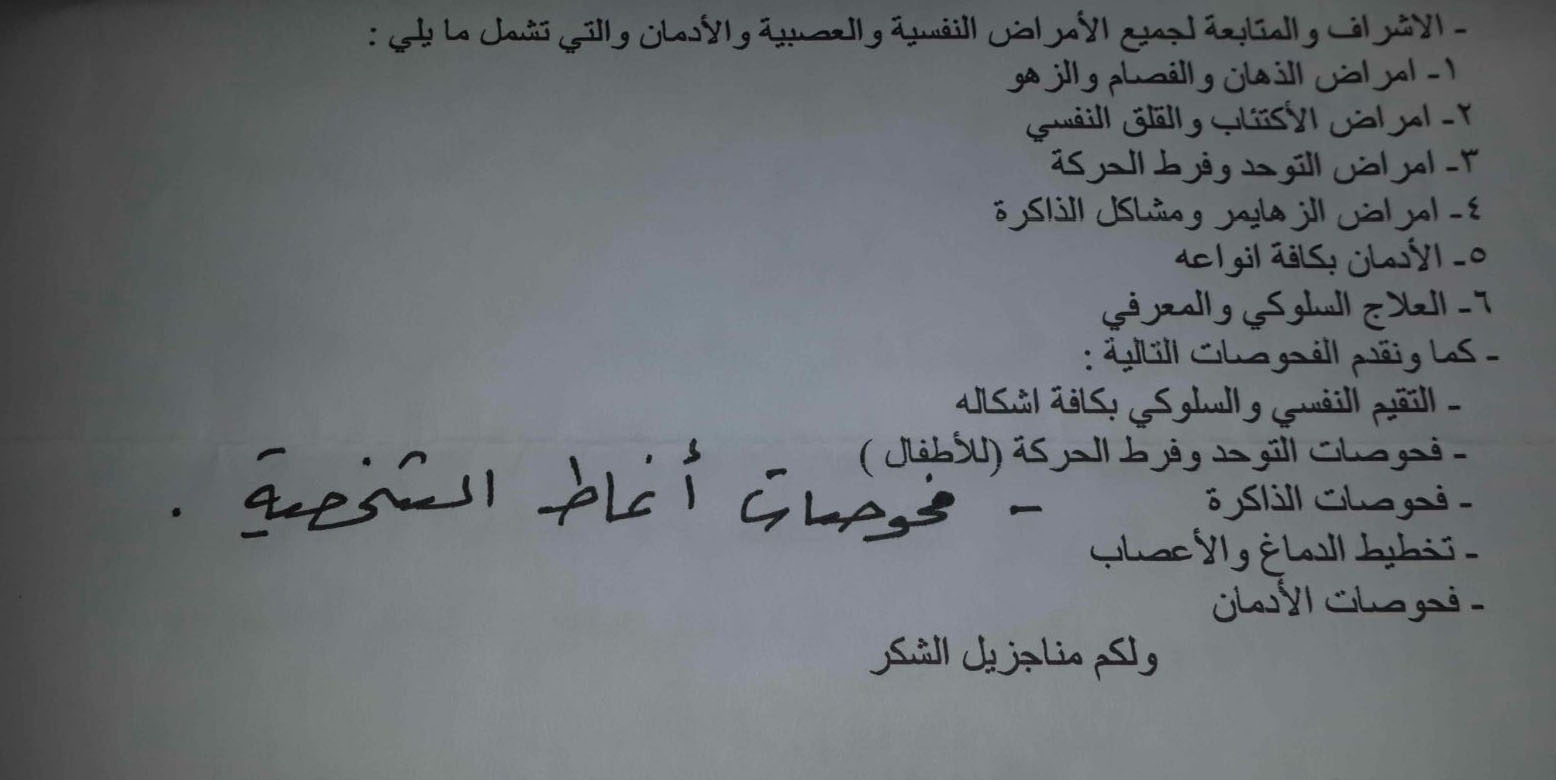 - الاشراف والمتابعة لجميع الأمراض النفسية والعصبية والأدمان والتي تشمل ما يلي :
١- امراض الذهان والفصام والزهو
٢- امراض الأكتئاب والقلق النفسي
٣- امراض التوحد وفرط الحركة
٤- امراض الزهايمر ومشاكل الذاكرة
٥- الأدمان بكافة انواعه
٦- العلاج السلوكي والمعرفي
- كما ونقدم الفحوصات التالية :
- التقيم النفسي والسلوكي بكافة اشكاله
- فحوصات التوحد وفرط الحركة (للأطفال )
- فحوصات الذاكرة
- فحوصات أنماط الشخصية .
- تخطيط الدماغ والأعصاب
- فحوصات الأدمان
ولكم مناجزيل الشكر